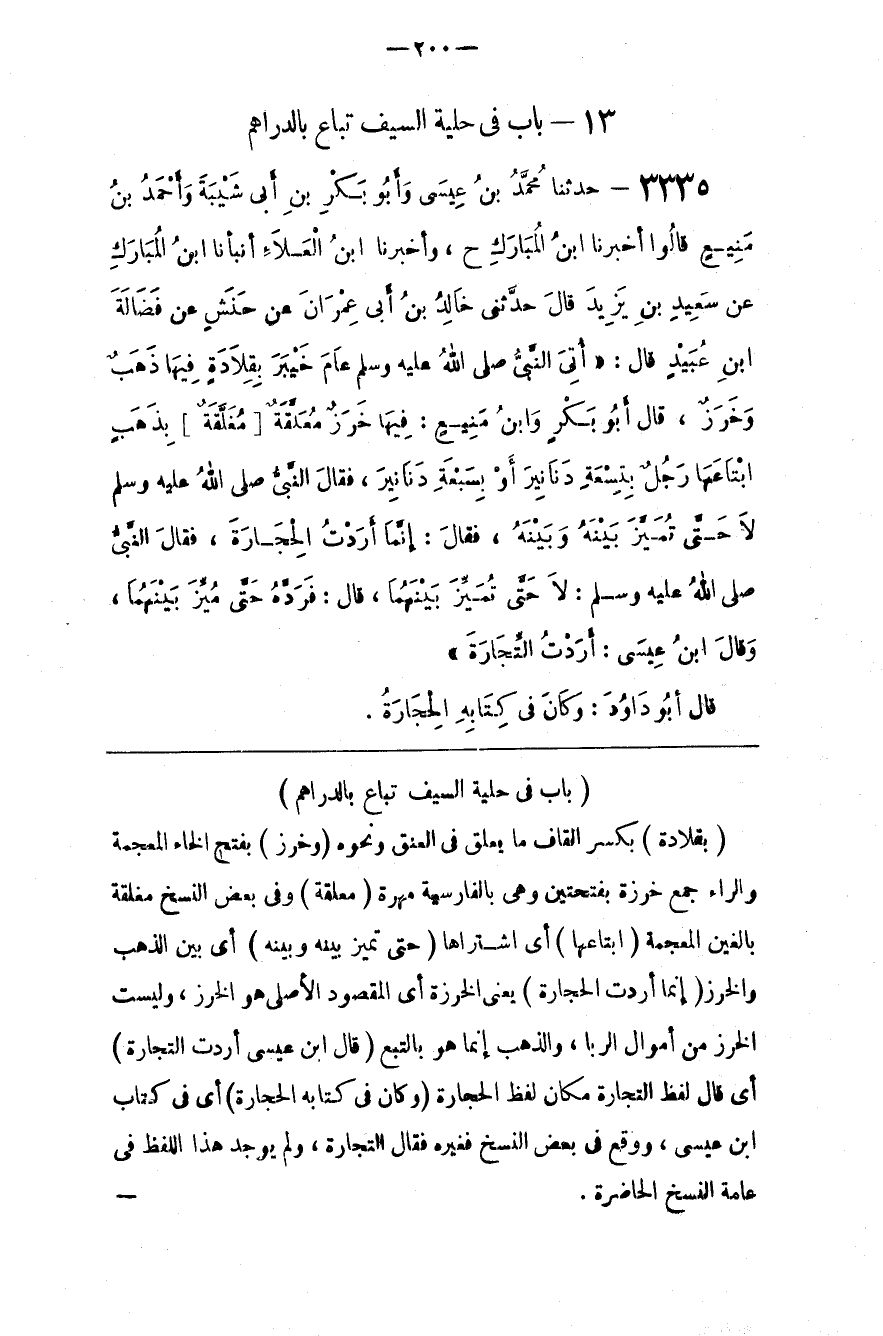 — ٢٠٠ —
١٣ — باب فى حلية السيف تباع بالدراهم
٣٣٣٥ — حدثنا مُحَمَّدُ بنُ عِيسَى وَأَبُو بَكْرِ بنِ أَبى شَيْبَةَ وَأَحْمَدُ بنُ
مَنِيعٍ قالُوا أخبرنا ابنُ الْمُبَارَكِ ح ، وأخبرنا ابنُ الْعَلاَءِ أنبأنا ابنُ الْمُبَارَكِ
عن سَعِيدِ بنِ يَزِيدَ قالَ حدَّثنى خَالِدُ بنُ أَبى عِمْرَانَ عن حَنَشٍ عن فَضَالَةَ
ابنِ عُبَيْدٍ قال : « أُتِىَ النَّبىُّ صلى اللهُ عليه وسلم عَامَ خَيْبَرَ بِقِلاَدَةٍ فِيهَا ذَهَبٌ
وَخَرَزٌ ، قال أَبُو بَكْرٍ وَابنُ مَنِيعٍ : فِيهَا خَرَزٌ مُعَلَّقَةٌ [ مُغَلَّقَةٌ ] بِذَهَبٍ
ابْتَاعَهَا رَجُلٌ بِتِسْعَةِ دَنَانِيرَ أَوْ بِسَبْعَةِ دَنَانِيرَ ، فقالَ النَّبىُّ صلى اللهُ عليه وسلم
لاَ حَتَّى تُمَيِّزَ بَيْنَهُ وَبَيْنَهُ ، فقالَ : إنَّمَا أَرَدْتُ الْحِجَارَةَ ، فقالَ النَّبىُّ
صلى اللهُ عليه وسلم : لاَ حَتَّى تُمَيِّزَ بَيْنَهُمَا ، قال : فَرَدَّهُ حَتَّى مُيِّزَ بَيْنَهُمَا ،
وَقالَ ابنُ عِيسَى : أَرَدْتُ التِّجَارَةَ »
قال أَبُو دَاوُدَ : وَكَانَ فى كِتَابِهِ الْحِجَارَةُ .
( باب فى حلية السيف تباع بالدراهم )
( بقلادة ) بكسر القاف ما يعلق فى العنق ونحوه ( وخرز ) بفتح الخاء المعجمة
والراء جمع خرزة بفتحتين وهى بالفارسية مهرة ( معلقة ) وفى بعض النسخ مغلقة
بالغين المعجمة ( ابتاعها ) أى اشتراها ( حتى تميز بينه وبينه ) أى بين الذهب
والخرز ( إنما أردت الحجارة ) يعنى الخرزة أى المقصود الأصلى هو الخرز ، وليست
الخرز من أموال الربا ، والذهب إنما هو بالتبع ( قال ابن عيسى أردت التجارة )
أى قال لفظ التجارة مكان لفظ الحجارة ( وكان فى كتابه الحجارة ) أى فى كتاب
ابن عيسى ، ووقع فى بعض النسخ فغيره فقال التجارة ، ولم يوجد هذا اللفظ فى
عامة النسخ الحاضرة . —